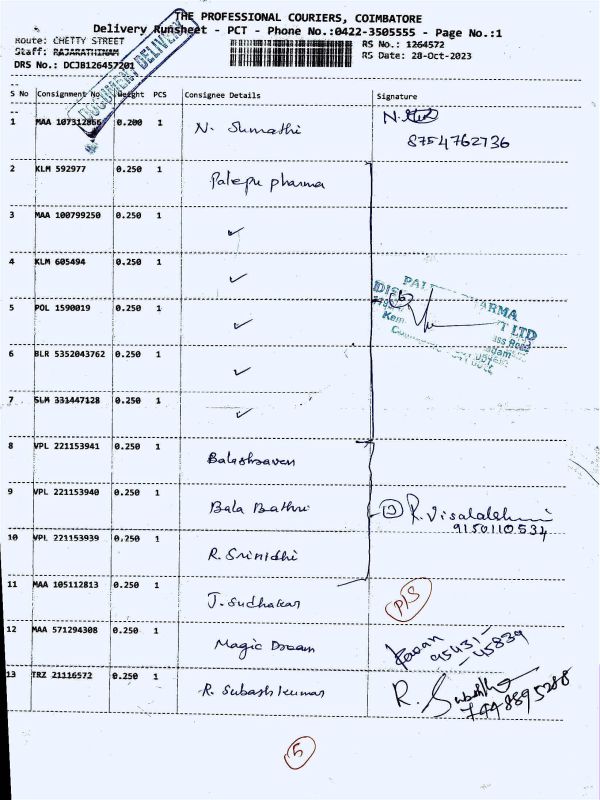 THE PROFESSIONAL COURIERS, COIMBATORE
Delivery Runsheet - PCT - Phone No.:0422-3505555 - Page No.:1
Route: CHETTY STREET
Staff: RAJARATHINAM
DRS No.: DCJB126457201
RS No.: 1264572
RS Date: 28-Oct-2023
DOCUMENT DELIVERY
S No Consignment No. Weight PCS Consignee Details Signature
1 MAA 107312866 0.200 1 N. Sumathi N.
8754762736
2 KLM 592977 0.250 1 Palepu pharma
3 MAA 100799250 0.250 1 ✓
4 KLM 605494 0.250 1 ✓
5 POL 1590019 0.250 1 ✓
6 BLR 5352043762 0.250 1 ✓
7 SLM 331447128 0.250 1 ✓
6
PHARMA
LTD
8 VPL 221153941 0.250 1
9 VPL 221153940 0.250 1 Bala
3 R. Visalakshmi
9150110534
10 VPL 221153939 0.250 1 R. Srinidhi
11 MAA 105112813 0.250 1 J. Sudhakar P/S
12 MAA 571294308 0.250 1 Magic Dream
95431-
-45839
13 TRZ 21116572 0.250 1 R. Subash kumar R.
5